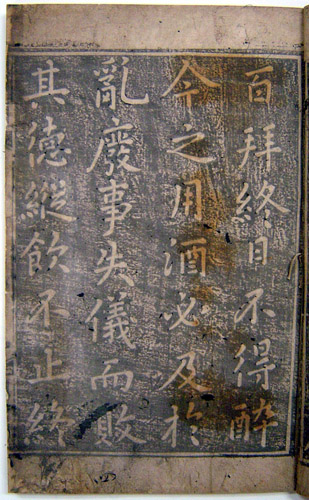 百拜終日不得醉
今之用酒必及於
亂廢事失儀而敗
其德縱飲不止終